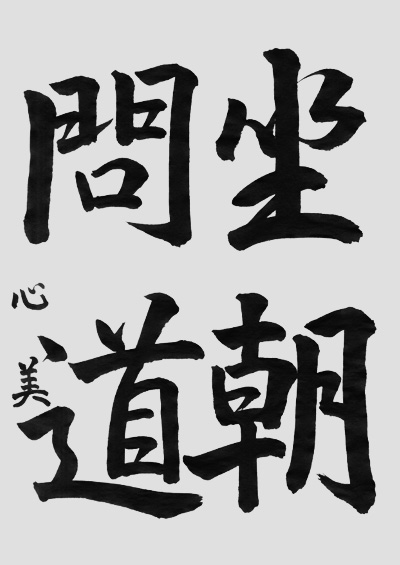 坐朝
問道
心美